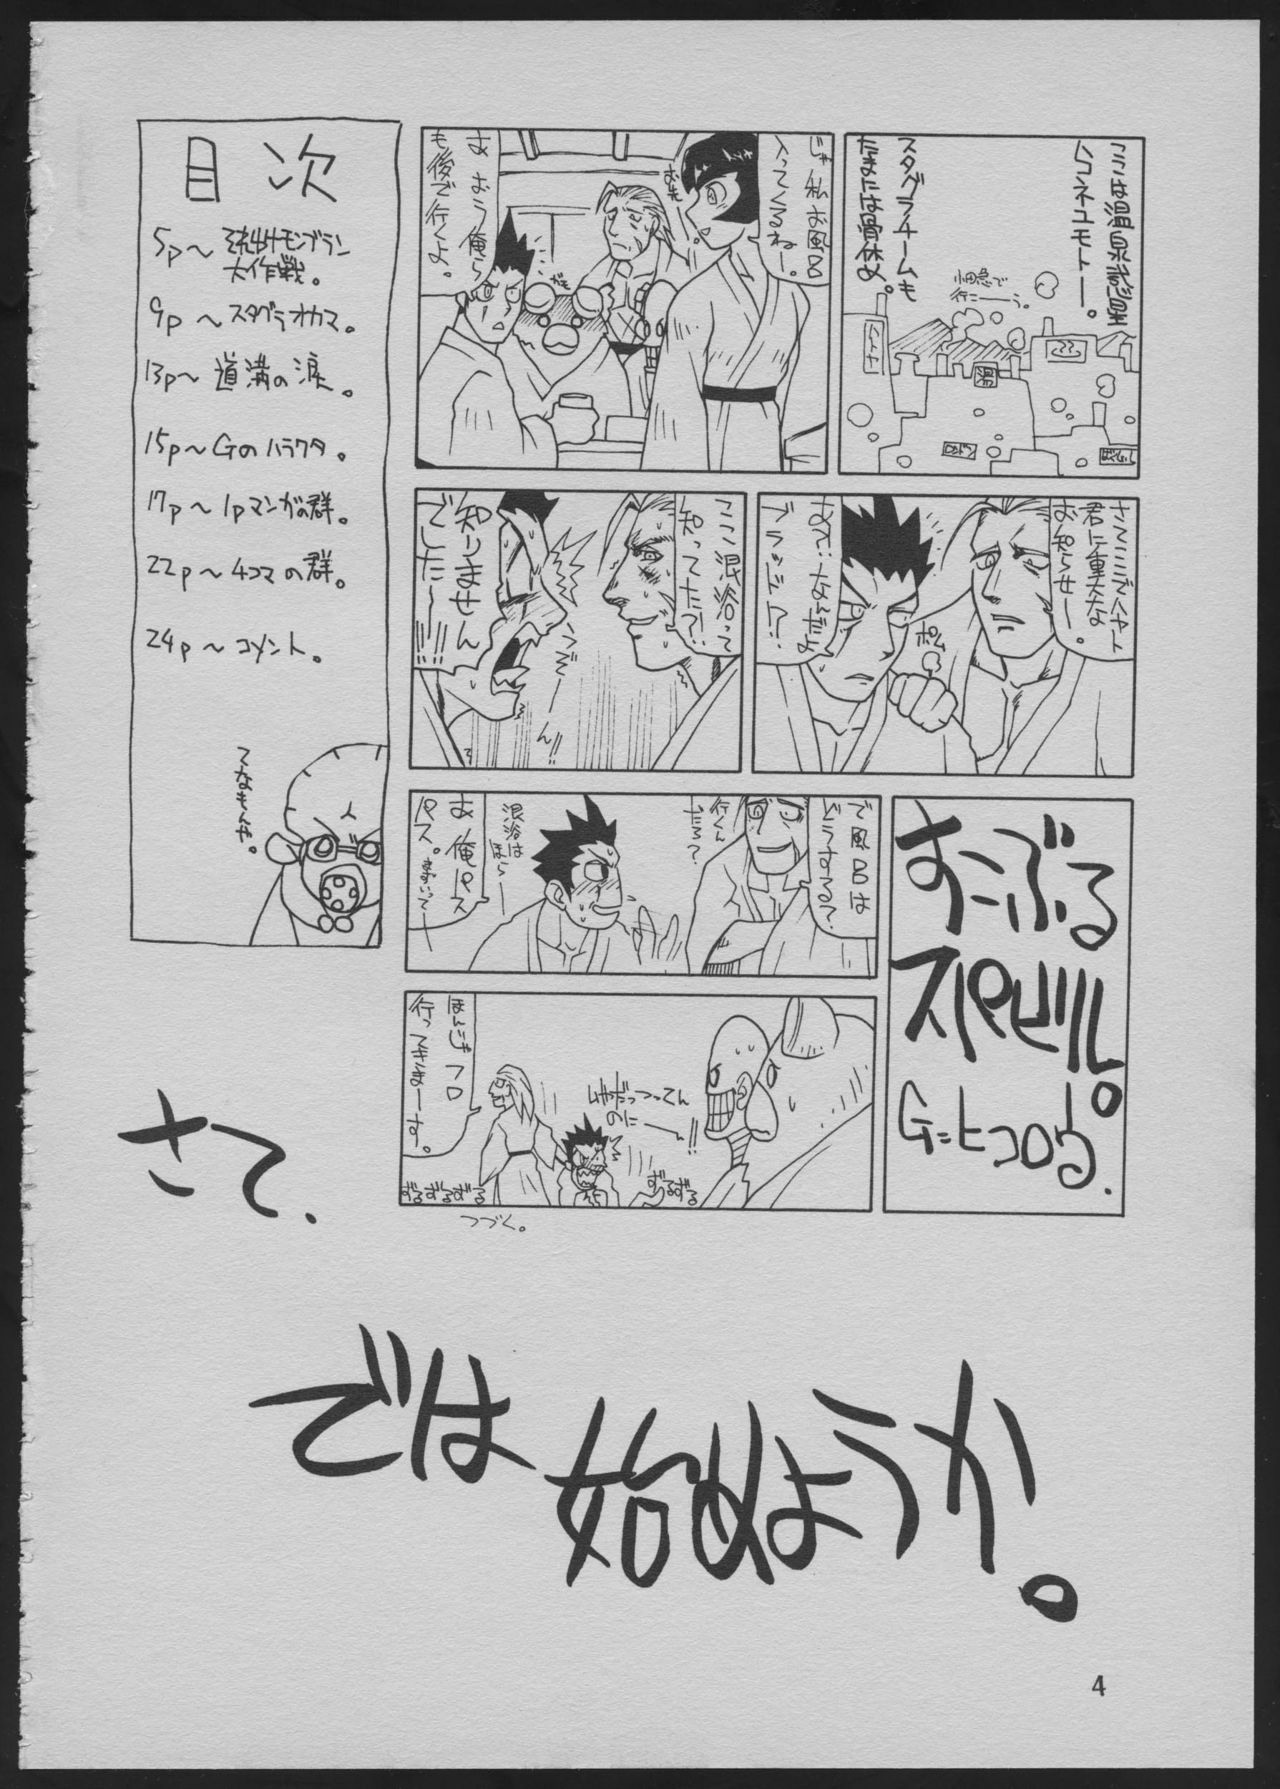 ここは温泉惑星
ムコネユモトー。
スタグラチームも
たまには骨休め。
小田急で
行こーう。
湯
じゃ私お風呂
入ってくるねー。
あ おう俺ら
も後で行くよ。
さてここでハヤト
君に重大な
お知らせー。
あんーなんだよ
ブラッド!?
ポン
ここ混浴って
知ってたー?
知りません
でしたー!!!
すこぶる
スパビル。
G=ヒコロウ.
で風呂は
どうなる?
行くん
だろ?
混浴は
ほらー
あ 俺パス
パス。
ほんじゃフロ
行ってきまーす。
のにー!!
ずるずる
ずるずるずる
つづく。
目次
5p〜それ出すモンブラン
大作戦。
9p〜スタグラオカマ。
13p〜道満の涙。
15p〜Gのハラワタ。
17p〜1pマンガの群。
22p〜4コマの群。
24p〜コメント。
てなもんや。
さて.
では
始めようか。
4